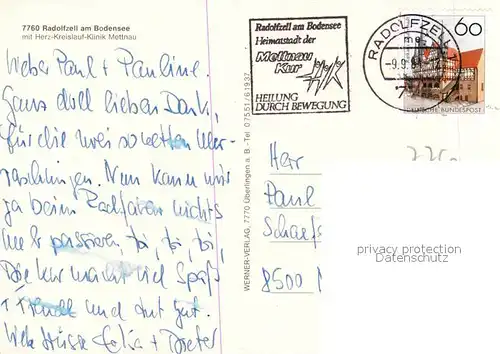 7760 Radolfzell am Bodensee
mit Herz-Kreislauf-Klinik Mettnau
Lieber Paul + Pauline.
Ganz doll lieben Dank,
für die zwei so netten Über-
raschungen. Nun kann mir
ja beim Radfahren nichts
mehr passieren, toi, toi, toi,
Die Kur macht viel Spaß
und tut gut.
Liebe Grüsse + Dieter
WERNER-VERLAG, 7770 Überlingen a. B. - Tel. 07551/61937
Radolfzell am Bodensee
Heimatstadt der
Mettnau
Kur
HEILUNG
DURCH BEWEGUNG
RADOLFZELL
-9.9.
60
DEUTSCHE BUNDESPOST
Herr
Paul
8500
privacy protection
Datenschutz